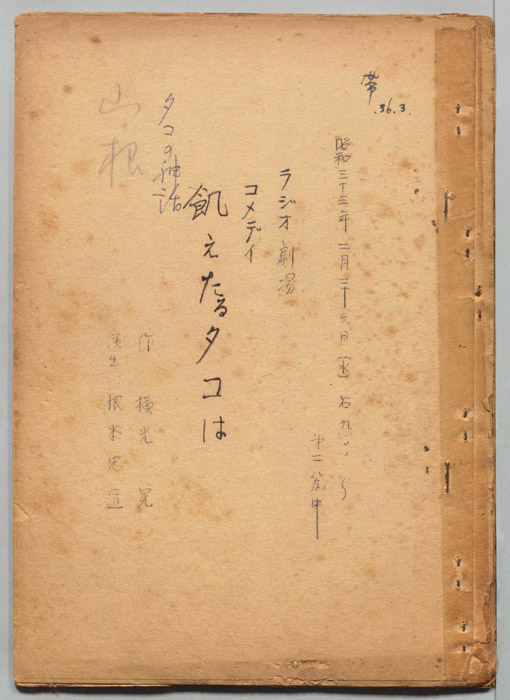 帯
.36.3.
昭和三十三年二月二十六日
ラジオ劇場
コメディ
飢えたるタコは
タコの神話
山根
作 横光 晃
演出 根本忠